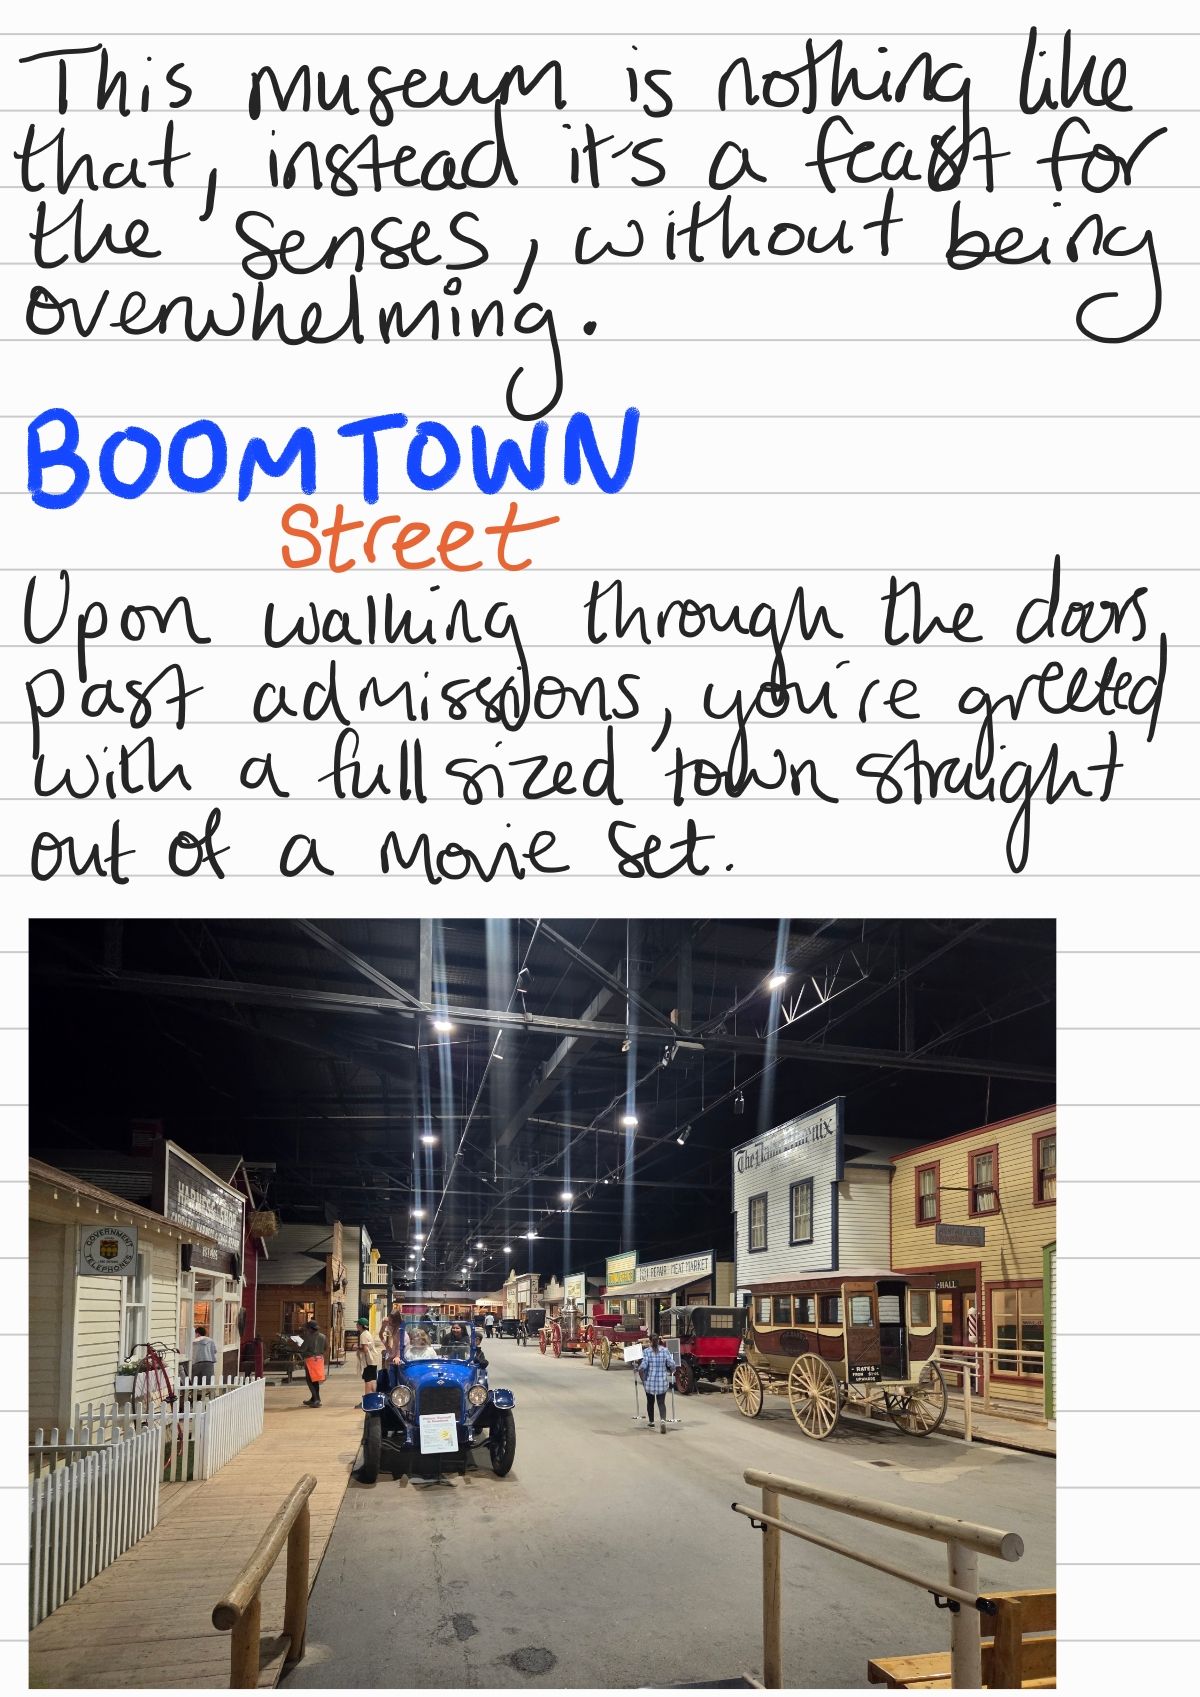 This museum is nothing like
that, instead it's a feast for
the senses, without being
overwhelming.
BOOMTOWN
Street
Upon walking through the doors
past admissions, you're greeted
with a full sized town straight
out of a movie set.
The
GOVERNMENT
TELEPHONES
MEAT MARKET
REPAIR
HALL
RATES
FROM
UPWARDS